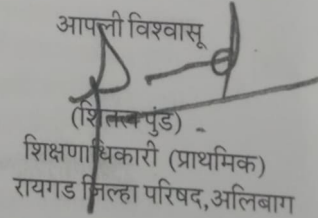 आपली विश्वासू
(शितल पुंड)
शिक्षणाधिकारी (प्राथमिक)
रायगड जिल्हा परिषद,अलिबाग